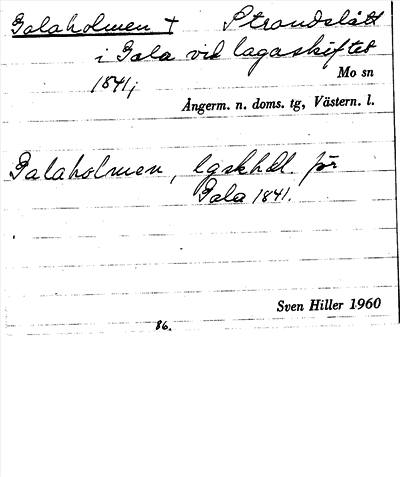 Galaholmen † Strandslått
i Gala vid lagaskiftet
1841; Mo sn
Ångerm. n. doms. tg, Västern. l.
Galaholmen, lgskhdl. för
Gala 1841.
Sven Hiller 1960
86.